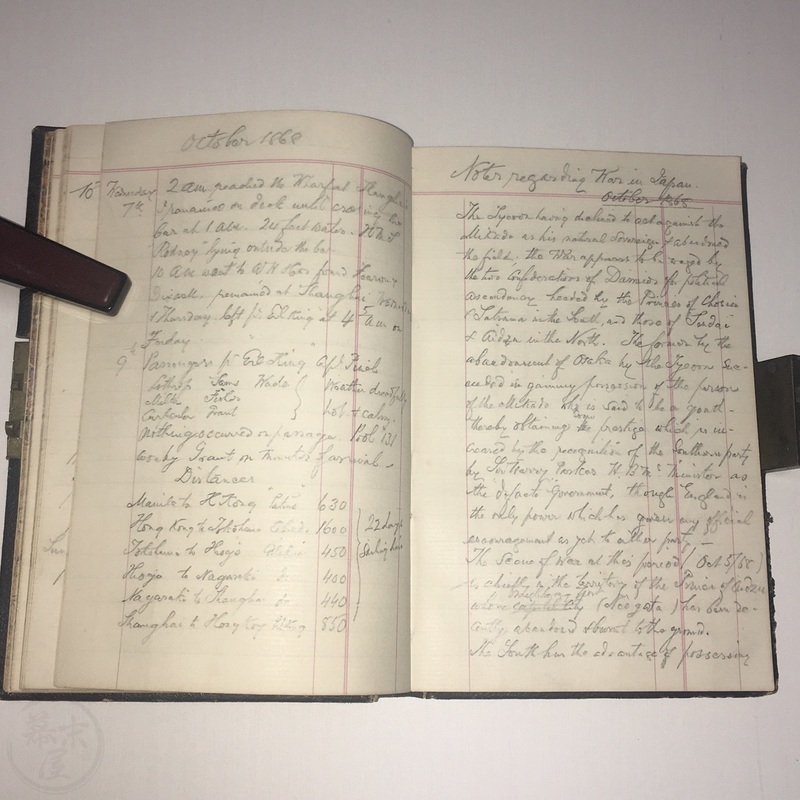 October 1868
10 Thursday 2 am reached the Wharf at Shanghai
7th remained on deck until crossing the
bar at 1 Am. 24 feet water. H.M.S
"Rodney" lying outside the bar
10 AM went to
remained at Shanghai
Thursday left pr at 4 Am on
Friday
9th Passengers pr Capt
Sams Wade Weather
Miller
Carpenter Grant hot & calm.
Nothing occurred on passage. Pool 131
won by Grant on minutes of arrival.
Distances
Manila to H Kong 630
Hong Kong to Yokohama 1600 22 days
Yokohama to Hiogo 450
Hiogo to Nagasaki do 400
Nagasaki to Shanghai do 440
Shanghai to Hong Kong 850
Notes regarding War in Japan.
October 1868
The Tycoon having declined to act against the
Mikado as his natural Sovereign & abandoned
the field, the War appears to be waged by
the two Confederations of Daimios for political
ascendancy headed by the Princes of Chosiu
& Satsuma in the South, and those of Sendai
& Aidzu in the North. The former by the
abandonment of Osaka by the Tycoon suc-
ceeded in gaining possession of the person
of the Mikado who is said to be a youth -
thereby obtaining the prestige which is in-
creased by the recognition of the Southern party
by Sir Harry Parkes H.B.M's Minister as
the defacto Government, though England is
the only power which has given any official
encouragement as yet to either party -
The Scene of War at this period (Oct 5/68)
is chiefly in the territory of the Prince of Aidzu
whose capital city (Neegata) has been re-
cently abandoned & burnt to the ground.
The South has the advantage of possessing